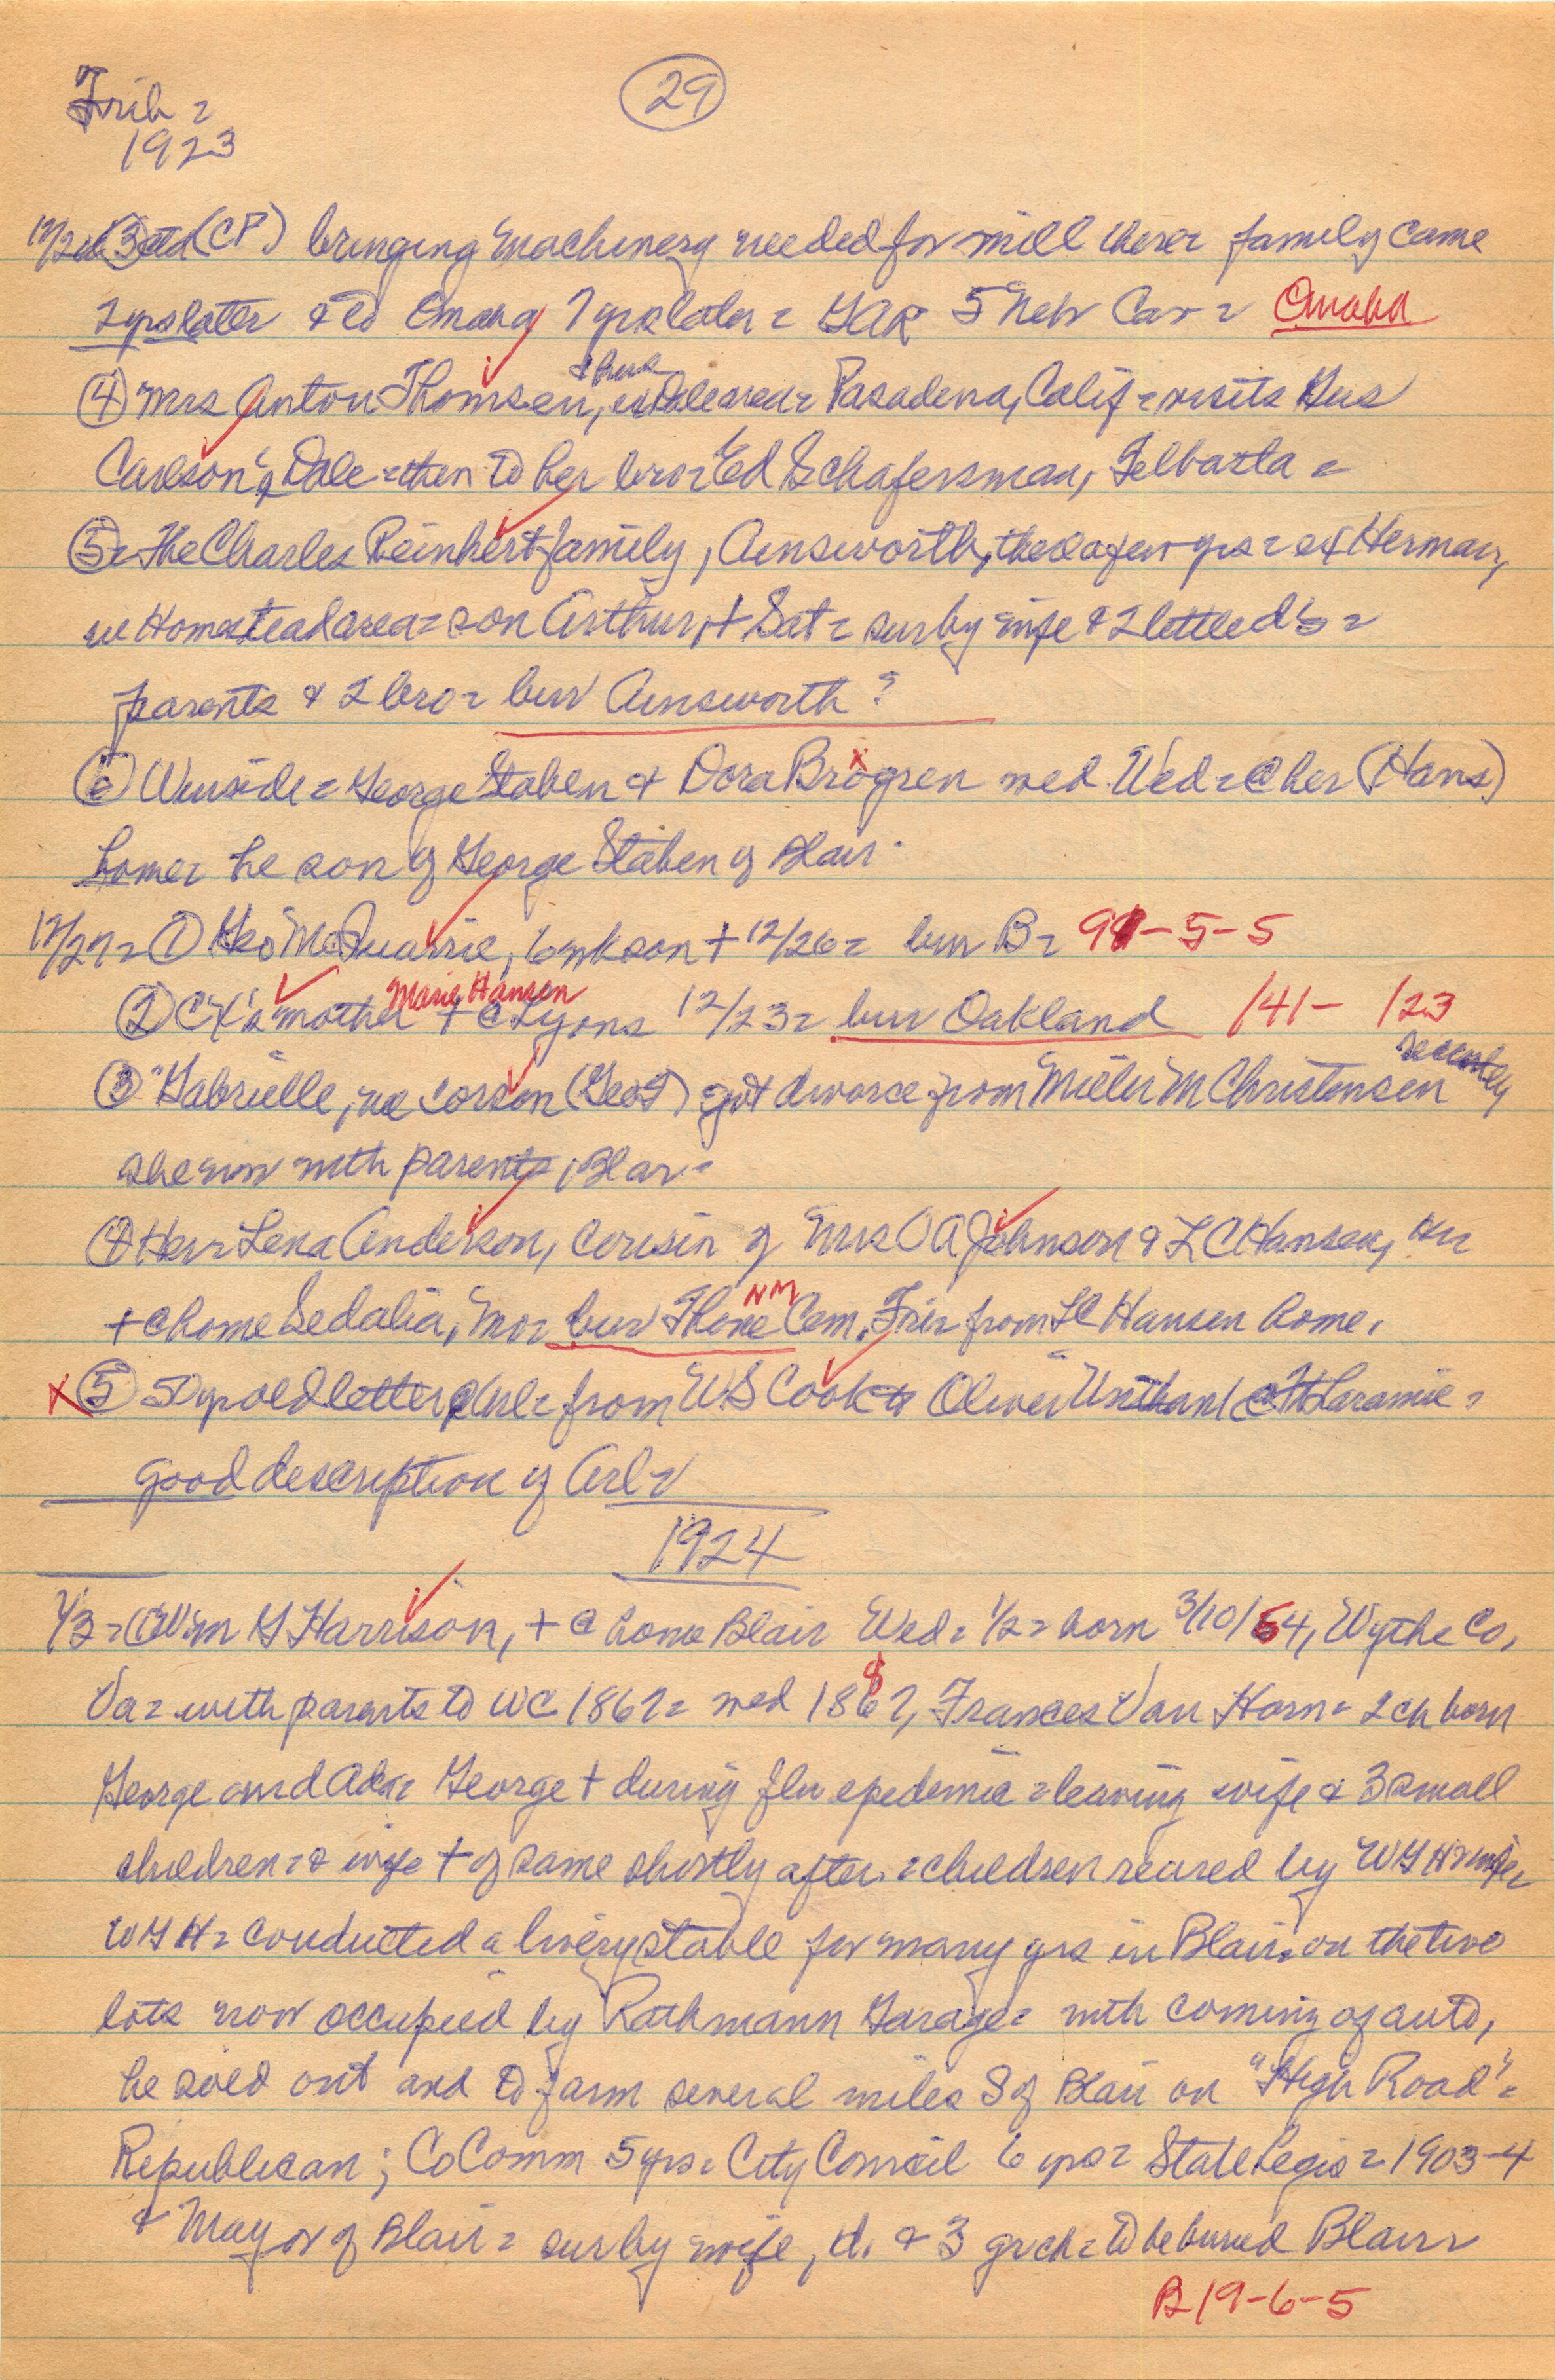 29
Trib =
1923
(CP) bringing machinery needed for mill there = family came
2 yrs later & to Omaha 7 yrs later = GAR 5 New Car = Omaha
④ Mrs Anton Thomsen, & husb Pasadena, Calif = visits Gus
Carlson's, Dale = then to her bro = Ed Schafersman, Telbasta =
⑤ = The Charles Reinhert family, Ainsworth, there a few yrs = of Herman,
ne Homestead area = son Arthur, + Sat = sur by wife & 2 little d's =
parents & 2 bro = bur Ainsworth?
⑥ Winside = George Staben & Dora Brogren wed Wed = @ her (Hans)
home = he son of George Staben of Blair =
12/27 = ① Geo McQuarrie, 6 wk son + 12/26 = bur B = 91-5-5
② CX's mother Marie Hansen + @ Lyons 12/23 = bur Oakland 141- 123
③ Gabrielle, ne Corson (Geo T) got divorce from Miller M Christensen recently
she now with parents, Blair =
④ Her = Lena Anderson, cousin of Mrs O A Johnson & L C Hansen, Her
+ @ home Sedalia, Mo = bur Thone NM Cem. Fri = from LC Hansen home.
X ⑤ 50 yr old letter @ Arl = from WS Cook to Oliver Unthank @ Ft Laramie =
good description of Arl =
1924
1/3 = ① Wm G Harrison, + @ home Blair Wed = 1/2 = born 3/10/54, Wythe Co,
Va = with parents to WC 1867 = wed 1887, Frances Van Horn = 2 ch born
George and Ada = George + during flu epedemic = leaving wife & 3 small
children = & wife + of same shortly after = children reared by WGH & wife =
WGH = conducted a livery stable for many yrs in Blair = on the two
lots now occupied by Rathmann Garage = with coming of auto,
he sold out and to farm several miles S of Blair on "High Road" =
Republican; Co Comm 5 yrs = City Council 6 yrs = State Legis = 1903-4
& Mayor of Blair = sur by wife, d. & 3 grch = to be buried Blair =
B19-6-5